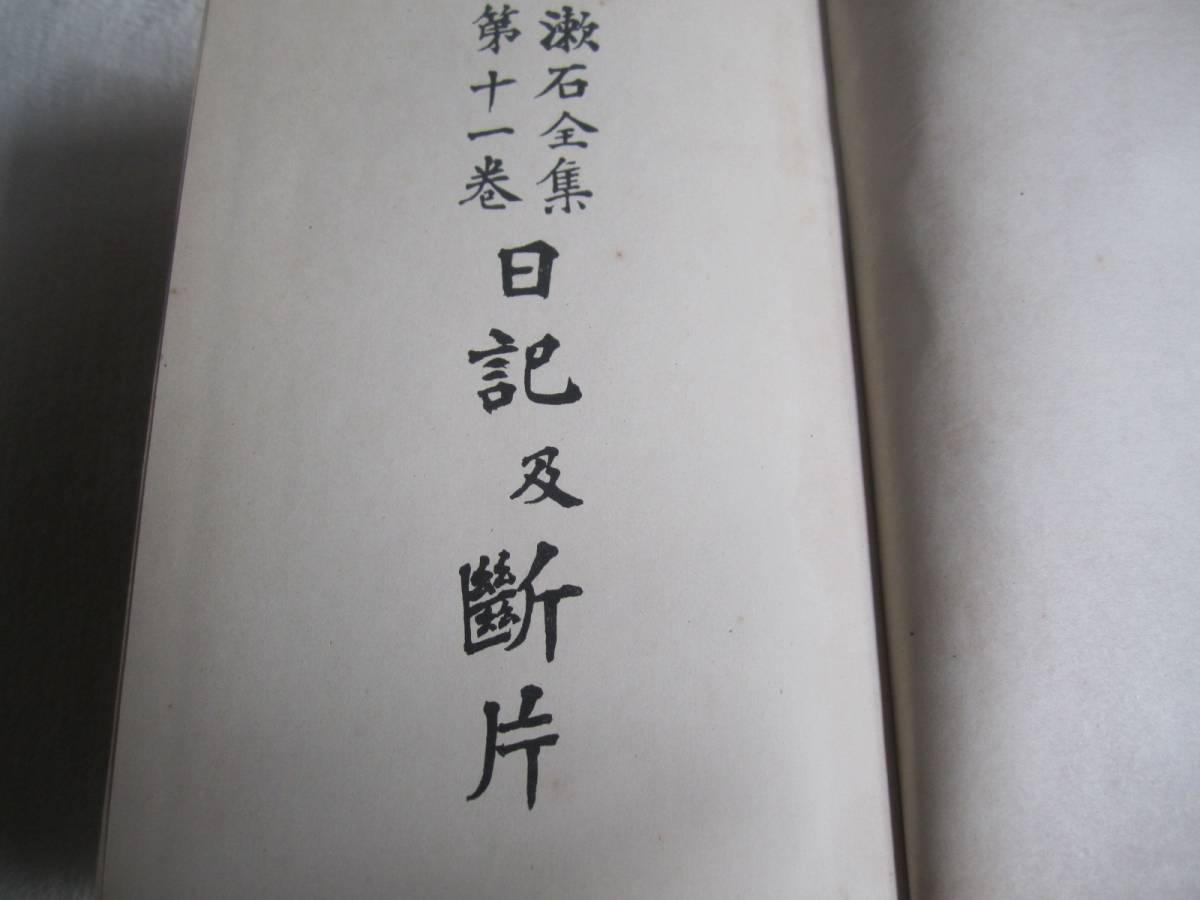 漱石全集
第十一卷
日記及斷片